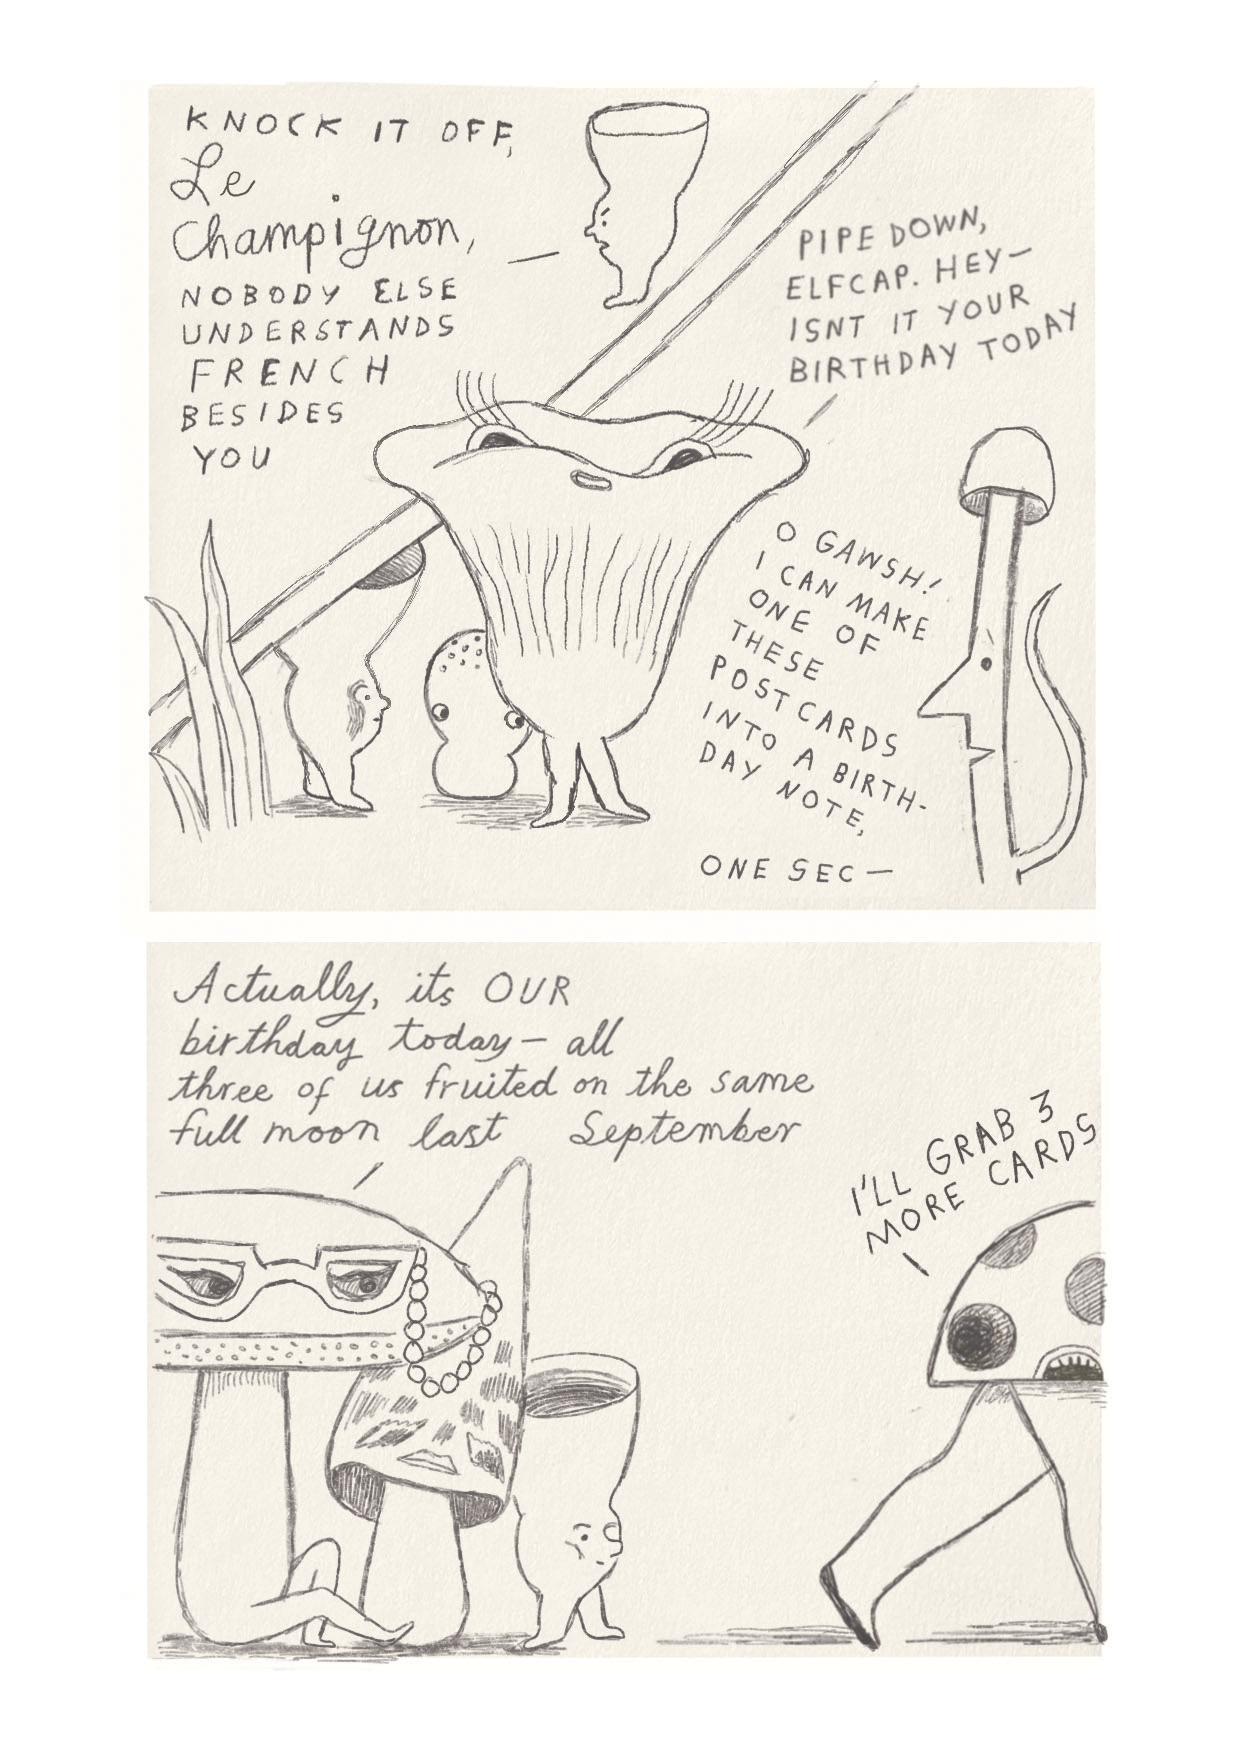 KNOCK IT OFF,
Le
Champignon,
NOBODY ELSE
UNDERSTANDS
FRENCH
BESIDES
YOU
PIPE DOWN,
ELFCAP. HEY—
ISNT IT YOUR
BIRTHDAY TODAY
O GAWSH!
I CAN MAKE
ONE OF
THESE
POSTCARDS
INTO A BIRTH-
DAY NOTE,
ONE SEC—
Actually, its OUR
birthday today— all
three of us fruited on the same
full moon last September
I'LL GRAB 3
MORE CARDS